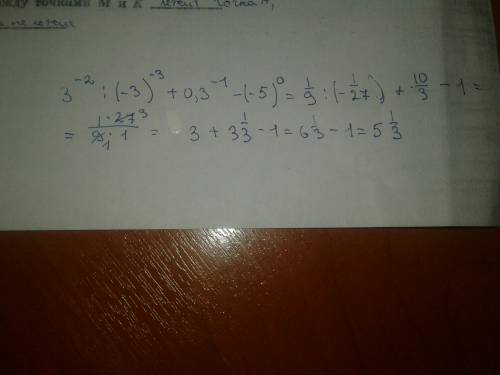 между точками M и K лежит точка
не лежит
3^{-2} : (-3)^{-3} + 0,3^{-1} - (-5)^0 = \frac{1}{9} : (-\frac{1}{27}) + \frac{10}{3} - 1 =
= \frac{1 · 27^3}{9_1 · 1} = 3 + 3\frac{1}{3} - 1 = 6\frac{1}{3} - 1 = 5\frac{1}{3}